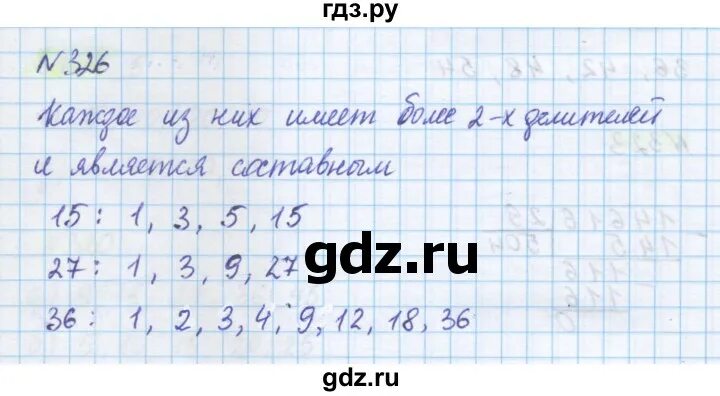 гдз.ру
N 326
Каждое из них имеет более 2-х делителей
и является составным
15: 1, 3, 5, 15
27: 1, 3, 9, 27
36: 1, 2, 3, 4, 9, 12, 18, 36
gdz.ru
gdz.ru